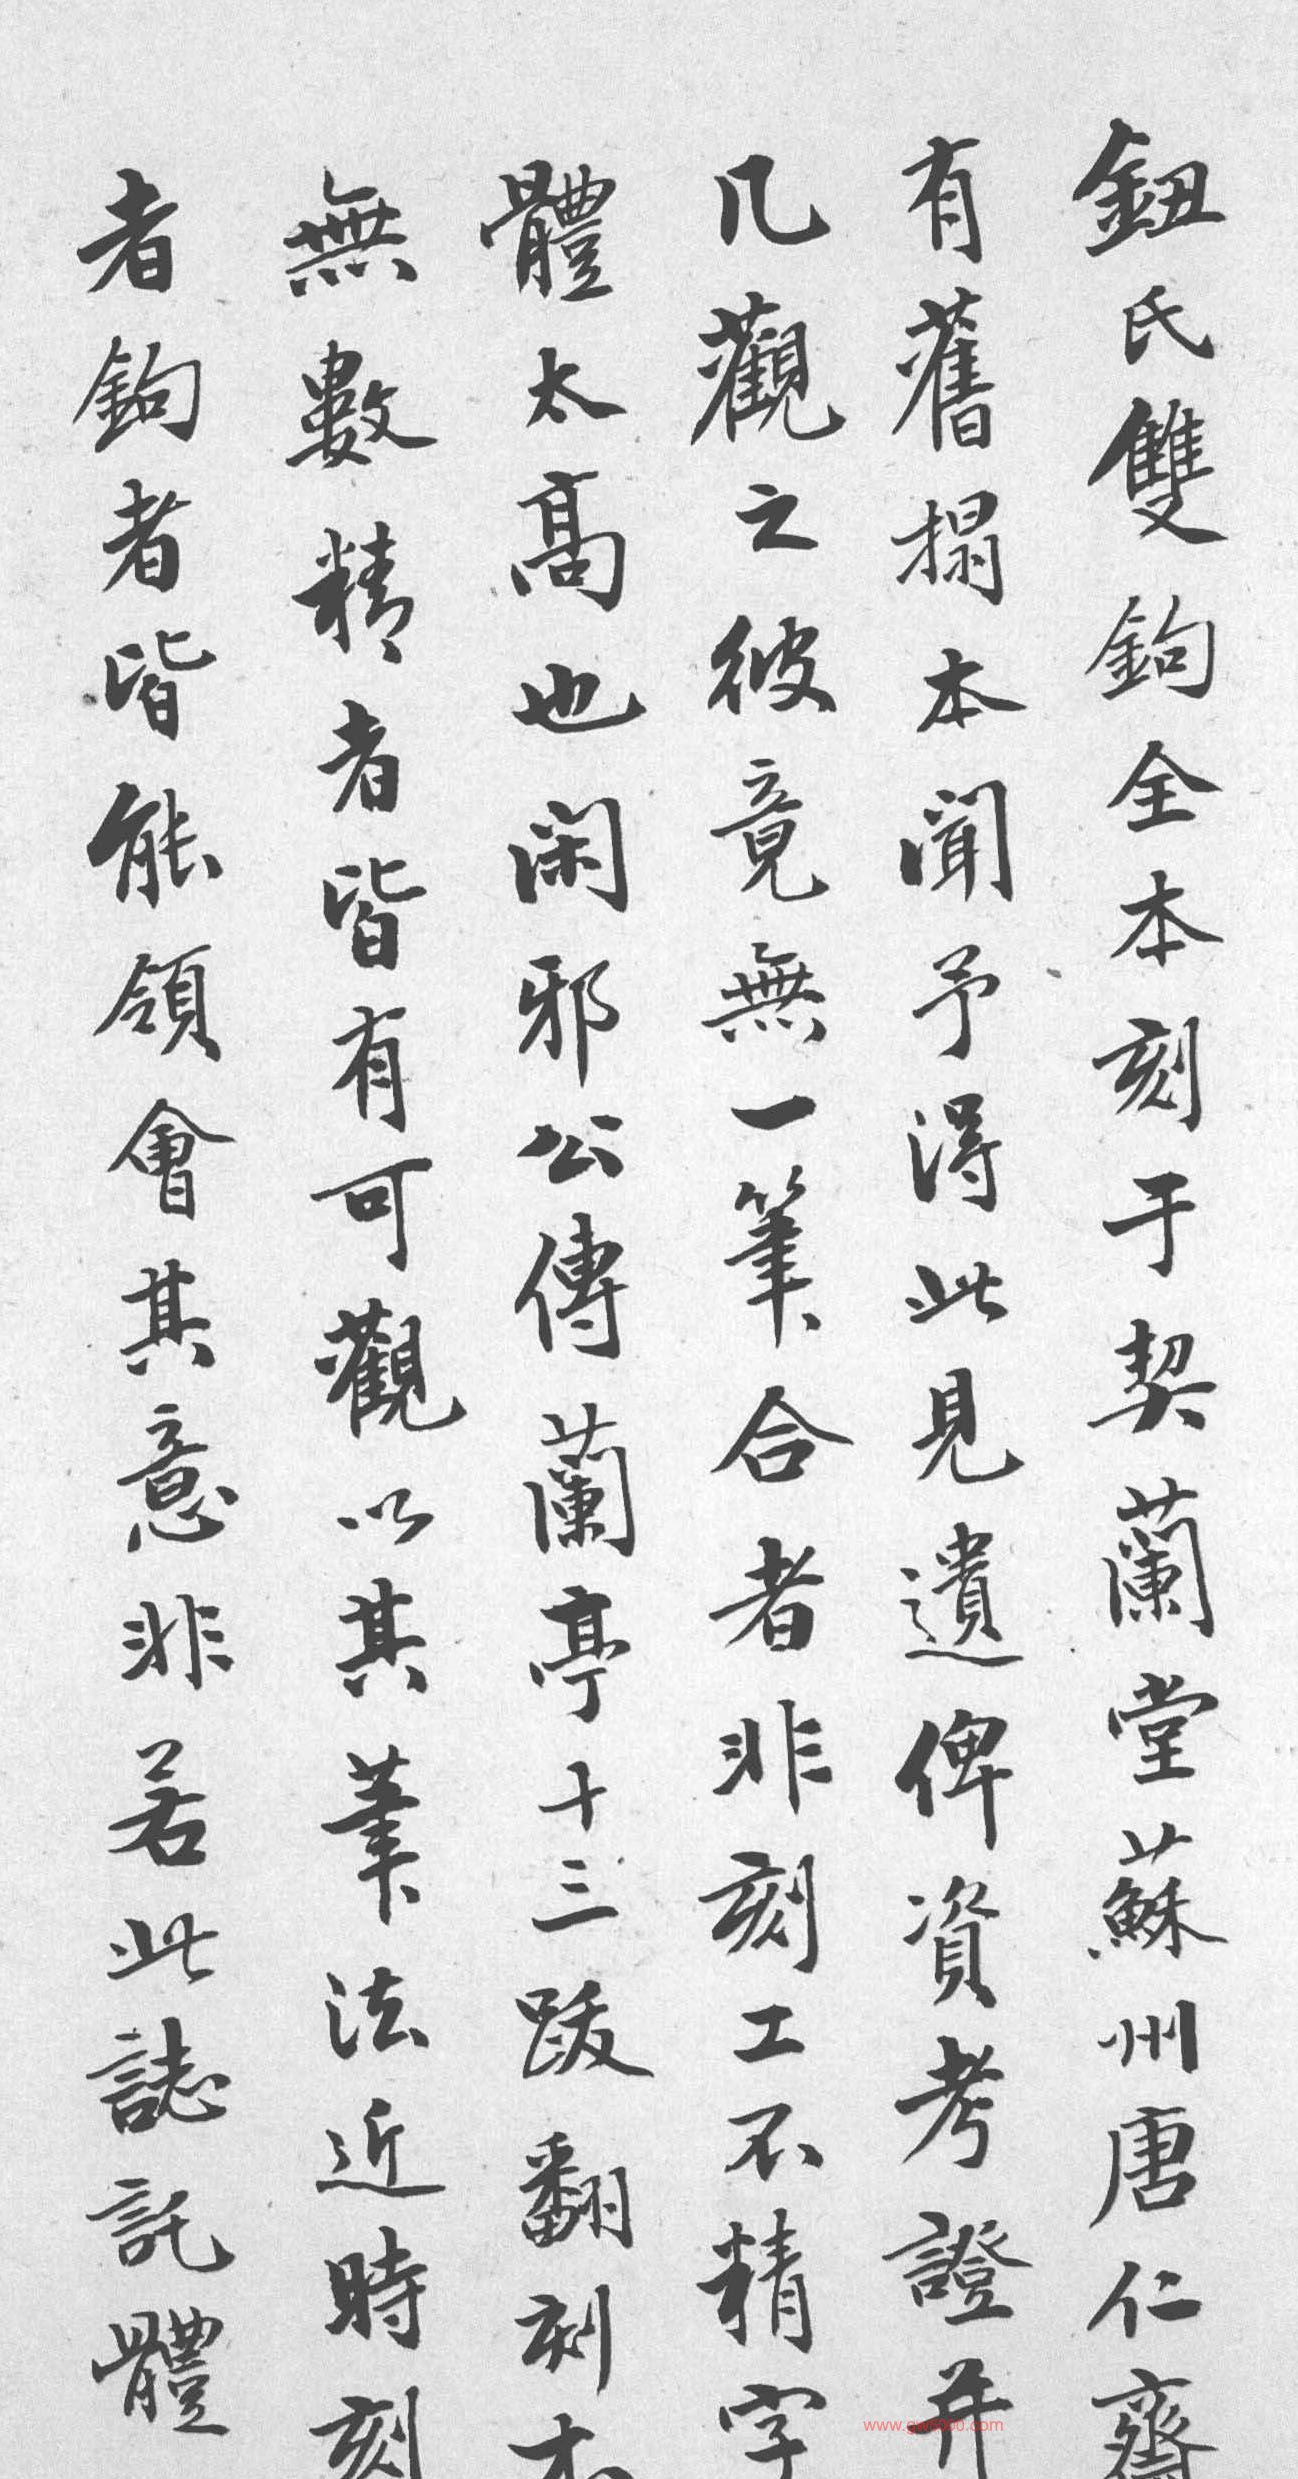 鈕氏雙鉤全本刻于契蘭堂蘇州唐仁齋
有舊搨本聞予得此見遺俾資考證并
几觀之彼竟無一筆合者非刻工不精字
體太高也閑邪公傳蘭亭十三跋翻刻本
無數精者皆有可觀以其筆法近時刻
者鉤者皆能領會其意非若此誌託體
www.gw5000.com